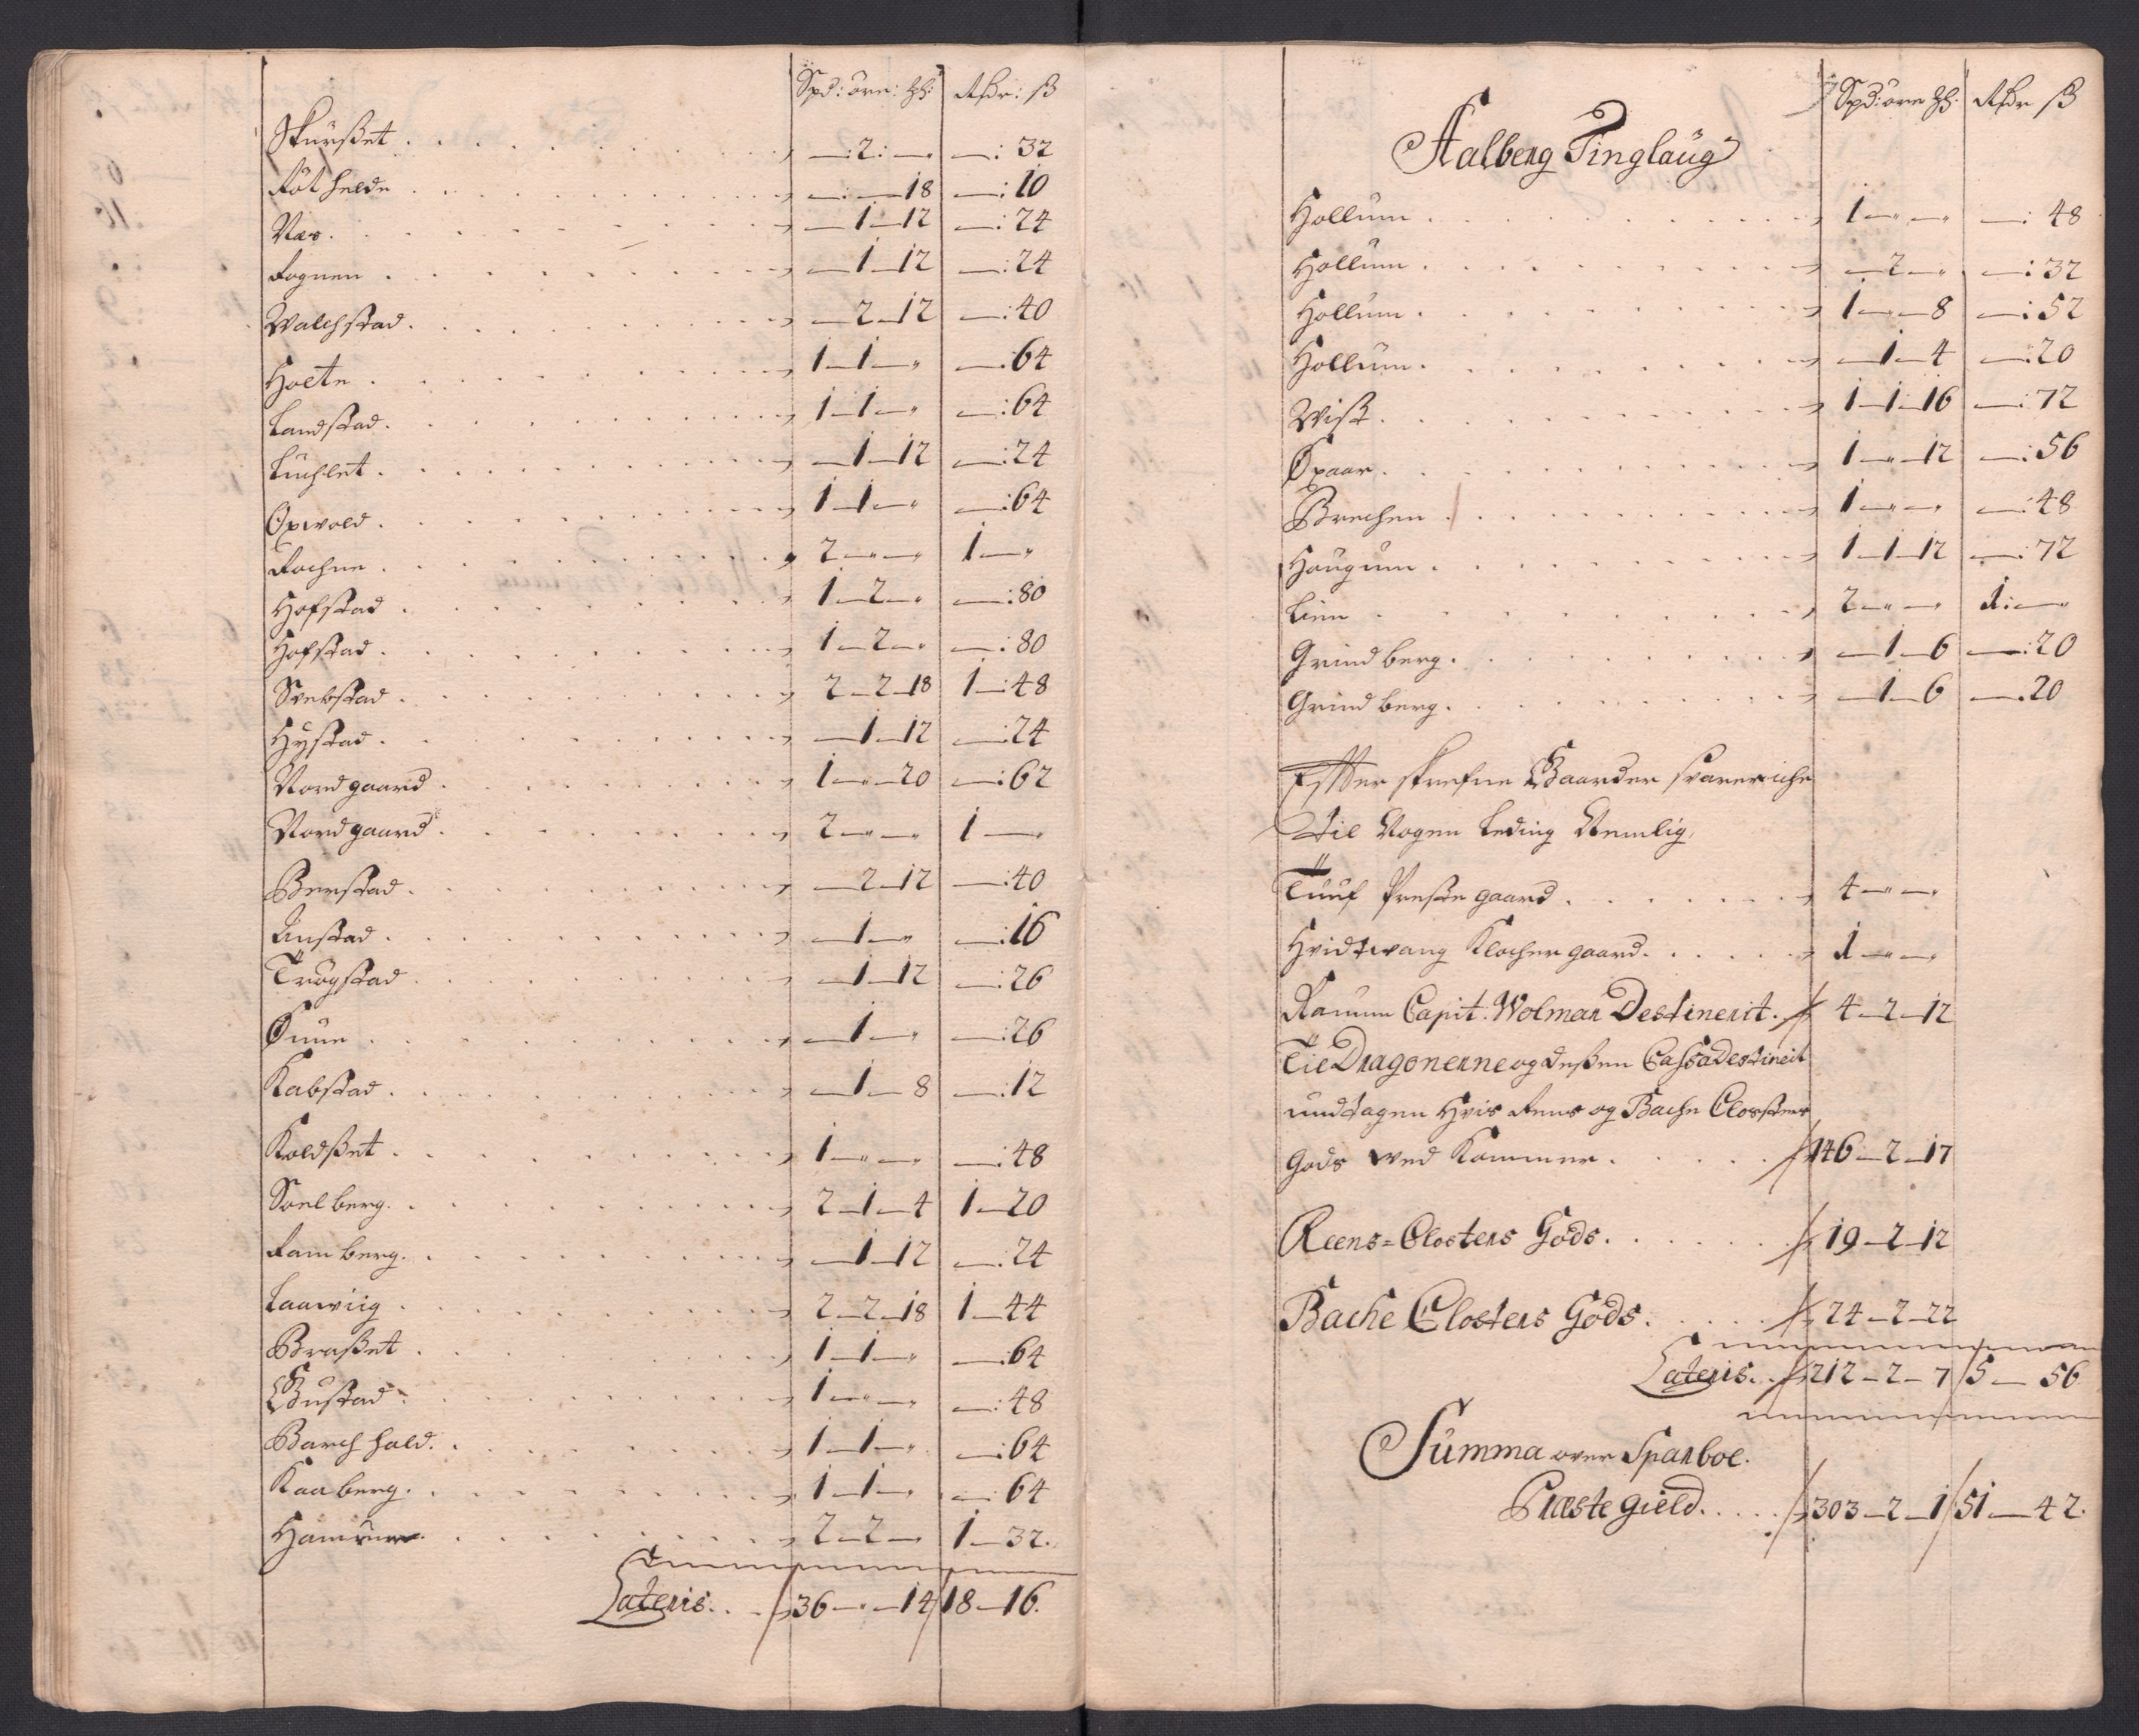 Spd: öre: ℔: Rdr: ß
Skurßet . . . — : 2 : — „ — : 32
Röthelde . . . — : — 18 — : 10
Næs . . . — 1 — 12 — : 24
Rognen . . . — 1 — 12 — : 24
Walchstad . . . — 2 — 12 — : 40
Holte . . . 1 — 1 — „ — : 64
Landstad . . . 1 — 1 — „ — : 64
Luchlet . . . — 1 — 12 — : 24
Opwold . . . 1 — 1 — „ — : 64
Rochne . . . 2 — „ — „ 1 — „
Hofstad . . . 1 — 2 — „ — : 80
Hofstad . . . 1 — 2 — „ — : 80
Svebstad . . . 2 — 2 — 18 1 — : 48
Hÿstad . . . — 1 — 12 — : 24
Nordgaard . . . 1 — „ — 20 — : 62
Nordgaard . . . 2 — „ — „ 1 — „
Berstad . . . — 2 — 12 — : 40
Unstad . . . — 1 — „ — : 16
Trøgstad . . . — 1 — 12 — : 26
Øune . . . — 1 — „ — : 26
Kabstad . . . — 1 — 8 — : 12
Koldßet . . . 1 — „ — „ — : 48
Soelberg . . . 2 — 1 — 4 1 — 20
Ramberg . . . — 1 — 12 — : 24
Laawiig . . . 2 — 2 — 18 1 — 44
Braßet . . . 1 — 1 — „ — : 64
Gustad . . . 1 — „ — „ — : 48
Barchhald . . . 1 — 1 — „ — : 64
Kaaberg . . . 1 — 1 — „ — : 64
Hammer . . . 2 — 2 — „ 1 — 32.
Lateris . . . 36 — „ — 14 18 — 16.
Spd: öre ℔: Rdr ß
Aalberg Tinglaug
Hollum . . . 1 — „ — „ — : 48
Hollum . . . — 2 — „ — : 32
Hollum . . . 1 — „ — 8 — : 52
Hollum . . . — 1 — 4 — : 20
Wist . . . 1 — 1 — 16 — : 72
Opaar . . . 1 — „ — 12 — : 56
Brechen . . . 1 — „ — „ — : 48
Haugum . . . 1 — 1 — 12 — : 72
Lien . . . 2 — „ — „ 1 : — „
Grindberg . . . — 1 — 6 — : 20
Grindberg . . . — 1 — 6 — : 20
Effter skrefne Gaarder svarer iche
til Nogen Leding Nemlig,
Tuuf Preste gaard . . . 4 — „ — „
Hvidtwang Klocher gaard . . . 1 — „ — „
Ranum Capit: Wolmar Destinerit . 4 — 2 — 12
Til Dragonerne og deßen Cassa Destineit
undtagen Hvis Rens og Bache Closters
Gods ved Kommer . . . 146 — 2 — 17
Reens = Closters Gods . . . 19 — 2 — 12
Bache Closters Gods . . . 24 — 2 — 22
Lateris . . 212 — 2 — 7 5 — 56
Summa over Sparboe.
Præste gield . . . . 303 — 2 — 1 51 — 42.